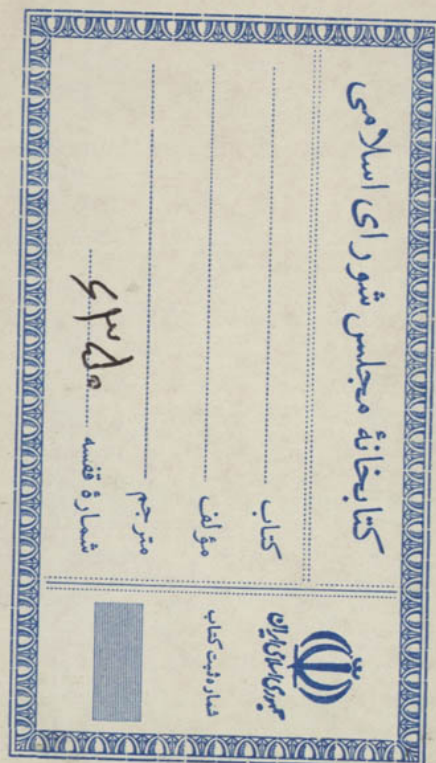 کتابخانهٔ مجلس شورای اسلامی
کتاب
مؤلف
مترجم
شمارهٔ قفسه ۶۳۵۰
جمهوری اسلامی ایران
شماره ثبت کتاب